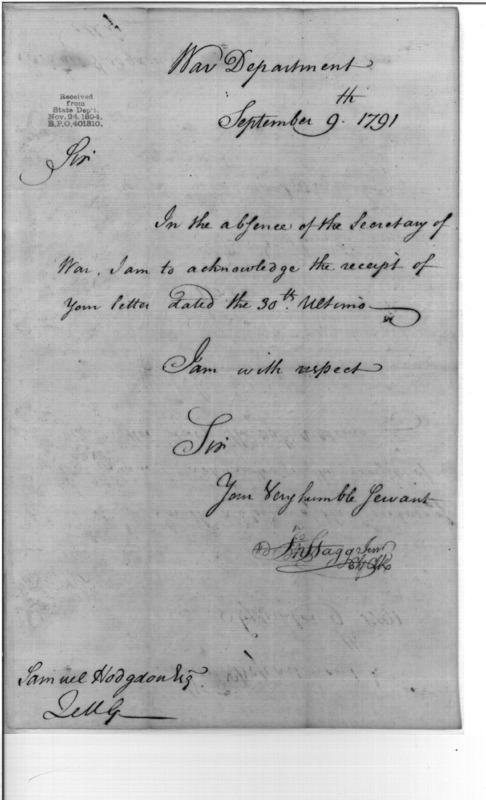 War Department
September 9th. 1791
Received
from
State Dep't.
Nov. 24, 1894.
R.P.O. 401310.
Sir
In the absence of the Secretary of
War, I am to acknowledge the receipt of
Your letter dated the 30th. Ultimo
I am with respect
Sir
Your Very humble Servant
Jn Stagg Junr
Ch Clk
Samuel Hodgdon Esqr
QMG